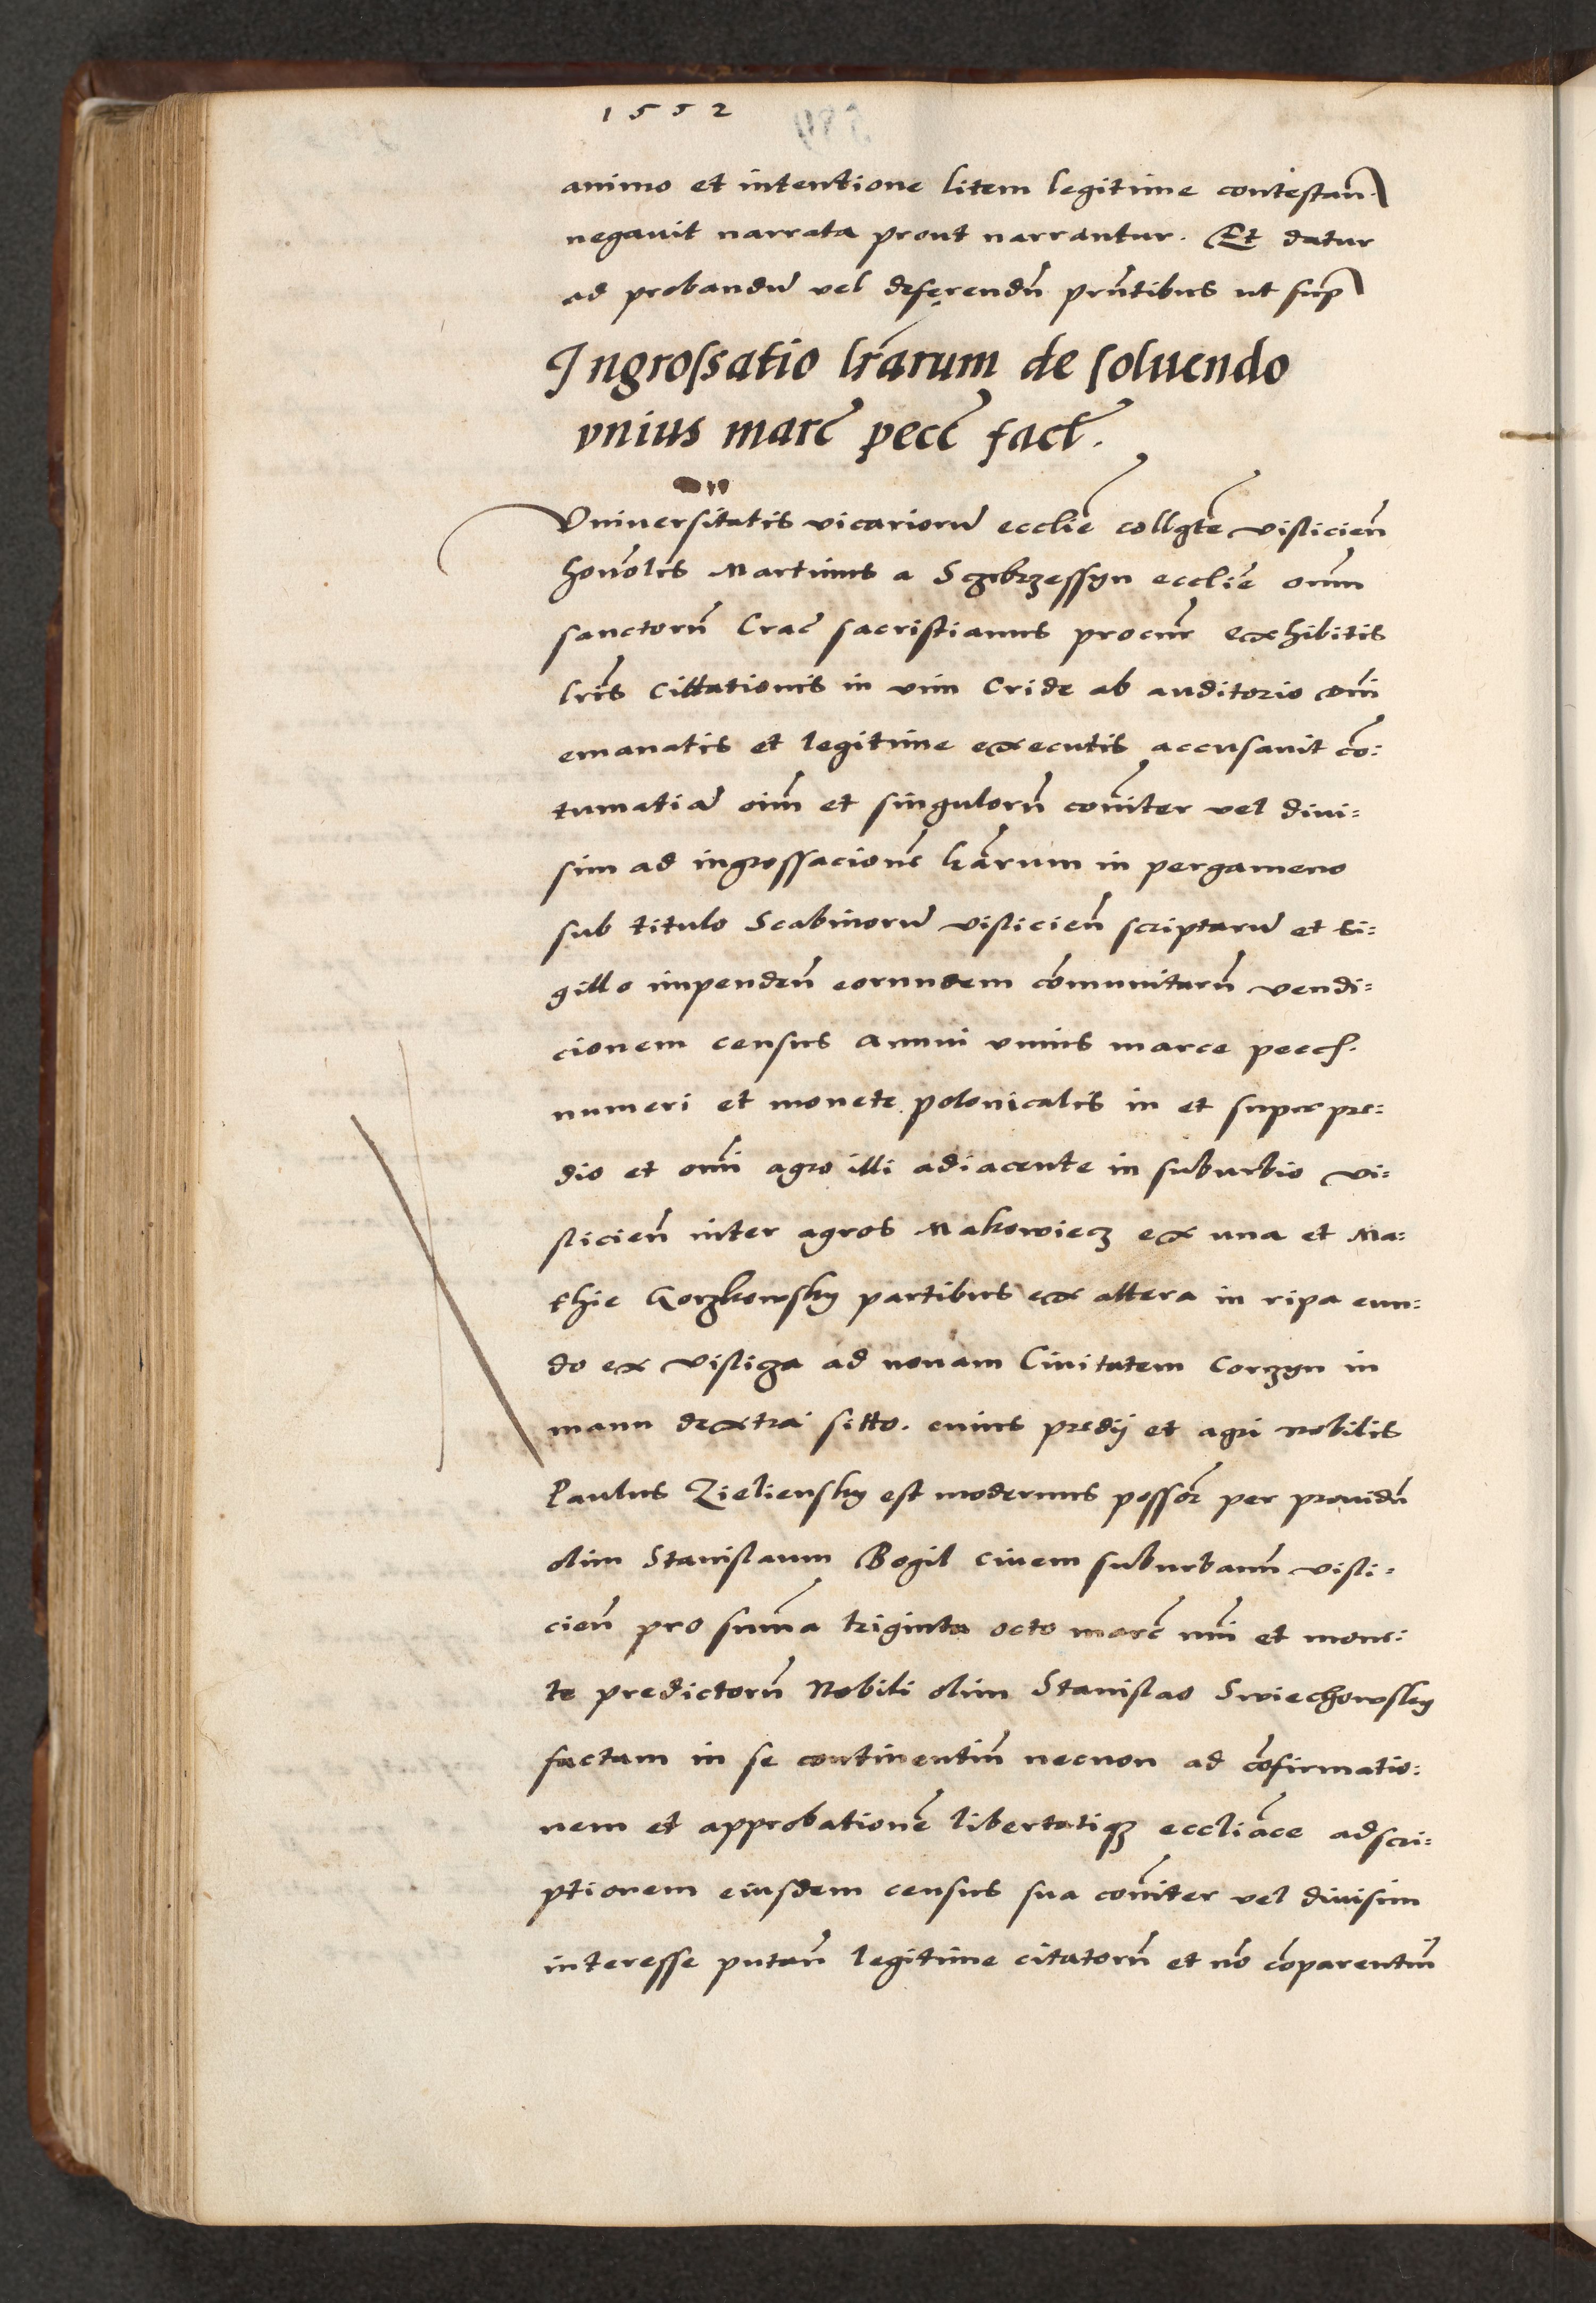 1552
animo et intentione litem legitime contestan̄
negauit narrata prout narrantur. Et datur
ad probandū vel deferendū pn̄tibus ut sup
Ingrossatio lr̄arum de soluendo
vnius marc̄ pecc̄ fact̄.
Vniversitatis vicariorū eccliē collgtē visliciēn
honōlis Martinus a Sczebrzessyn eccliē om̄
sanctorū Crac̄ sacristianus procur̄ exhibitis
lr̄is Cittationis in vim Cride ab auditorio om̄i
emanatis et legitime executis accusauit cō:
tumatiā oīm et singulorū com̄iter vel diui:
sim ad ingrossacionē lr̄arum in pergameno
sub titulo Scabinorū visliciēn scriptarū et si:
gillo impendēn eorundem cōmunitarū vendi:
cionem census annui vnius marce pecc.
numeri et monete polonicalis in et super pre:
dio et om̄i agro illi adiacente in suburbio vi:
sliciēn inter agros Makowiecz ex una et Ma:
thie Gorzkowsky partibus ex altera in ripa eun:
do ex Visliza ad nouam Ciuitatem Corzyn in
manu dextra sitto. cuius predij et agri nobilis
Paulus Zieliensky est modernus possōr per prouidū
olim Stanislaum Bogil ciuem suburbanū visli:
ciēn pro sum̄a triginta octo marc̄ nr̄i et mone:
te predictorū Nobili olim Stanislao Swiechowsky
factam in se continentiū necnon ad cōfirmatio:
nem et approbationē libertatiqz eccliāce adscri:
ptionem eiusdem census sua com̄iter vel diuisim
interesse putān legitime citatorū et nō cōparentiū